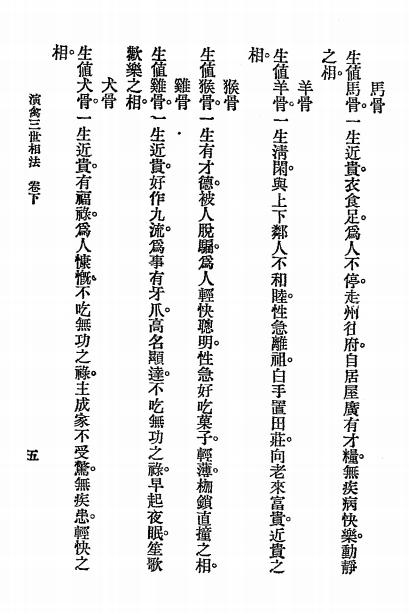 馬骨
生値馬骨一生近貴。衣食足。爲人不停。走州往府。自居屋廣有才糧。無疾病快樂動靜
之相。
羊骨
生値羊骨。一生淸閑。與上下鄰人不和睦。性急離祖。白手置田莊。向老來富貴。近貴之
相。
猴骨
生値猴骨。一生有才德。被人脫騙。爲人輕快聰明。性急好吃菓子。輕薄枷鎖直撞之相。
雞骨
生値雞骨。一生近貴。好作九流。爲事有牙爪。高名顯達。不吃無功之祿。早起夜眠。笙歌
歡樂之相。
犬骨
生値犬骨。一生近貴。有福祿。爲人慷慨。不吃無功之祿。主成家不受驚。無疾患。輕快之
相。
演禽三世相法 卷下
五